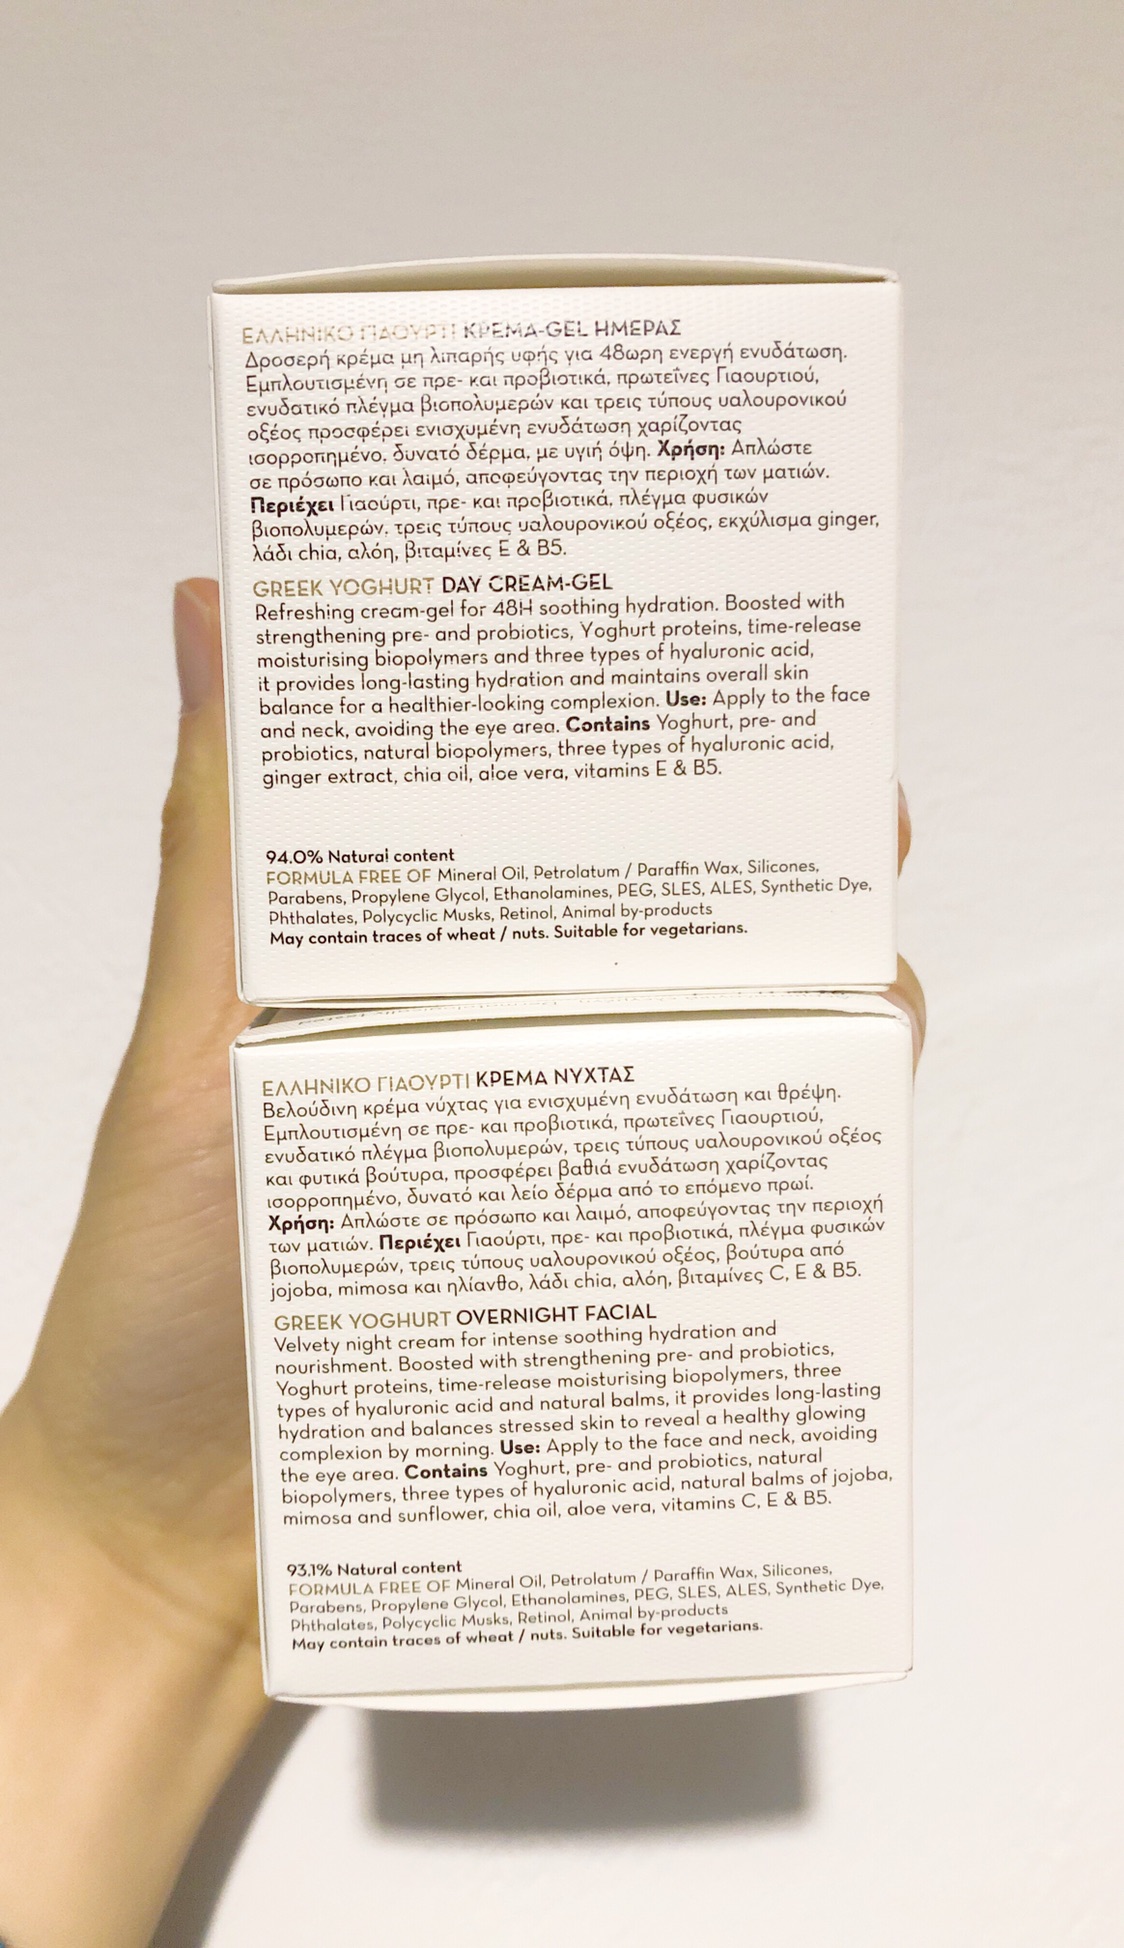 ΕΛΛΗΝΙΚΟ ΓΙΑΟΥΡΤΙ ΚΡΕΜΑ-GEL ΗΜΕΡΑΣ
Δροσερή κρέμα μη λιπαρής υφής για 48ωρη ενεργή ενυδάτωση.
Εμπλουτισμένη σε πρε- και προβιοτικά, πρωτεΐνες Γιαουρτιού,
ενυδατικό πλέγμα βιοπολυμερών και τρεις τύπους υαλουρονικού
οξέος προσφέρει ενισχυμένη ενυδάτωση χαρίζοντας
ισορροπημένο, δυνατό δέρμα, με υγιή όψη. Χρήση: Απλώστε
σε πρόσωπο και λαιμό, αποφεύγοντας την περιοχή των ματιών.
Περιέχει Γιαούρτι, πρε- και προβιοτικά, πλέγμα φυσικών
βιοπολυμερών, τρεις τύπους υαλουρονικού οξέος, εκχύλισμα ginger,
λάδι chia, αλόη, βιταμίνες Ε & Β5.
GREEK YOGHURT DAY CREAM-GEL
Refreshing cream-gel for 48H soothing hydration. Boosted with
strengthening pre- and probiotics, Yoghurt proteins, time-release
moisturising biopolymers and three types of hyaluronic acid,
it provides long-lasting hydration and maintains overall skin
balance for a healthier-looking complexion. Use: Apply to the face
and neck, avoiding the eye area. Contains Yoghurt, pre- and
probiotics, natural biopolymers, three types of hyaluronic acid,
ginger extract, chia oil, aloe vera, vitamins E & B5.
94.0% Natural content
FORMULA FREE OF Mineral Oil, Petrolatum / Paraffin Wax, Silicones,
Parabens, Propylene Glycol, Ethanolamines, PEG, SLES, ALES, Synthetic Dye,
Phthalates, Polycyclic Musks, Retinol, Animal by-products
May contain traces of wheat / nuts. Suitable for vegetarians.
ΕΛΛΗΝΙΚΟ ΓΙΑΟΥΡΤΙ ΚΡΕΜΑ ΝΥΧΤΑΣ
Βελούδινη κρέμα νύχτας για ενισχυμένη ενυδάτωση και θρέψη.
Εμπλουτισμένη σε πρε- και προβιοτικά, πρωτεΐνες Γιαουρτιού,
ενυδατικό πλέγμα βιοπολυμερών, τρεις τύπους υαλουρονικού οξέος
και φυτικά βούτυρα, προσφέρει βαθιά ενυδάτωση χαρίζοντας
ισορροπημένο, δυνατό και λείο δέρμα από το επόμενο πρωί.
Χρήση: Απλώστε σε πρόσωπο και λαιμό, αποφεύγοντας την περιοχή
των ματιών. Περιέχει Γιαούρτι, πρε- και προβιοτικά, πλέγμα φυσικών
βιοπολυμερών, τρεις τύπους υαλουρονικού οξέος, βούτυρα από
jojoba, mimosa και ηλίανθο, λάδι chia, αλόη, βιταμίνες C, E & B5.
GREEK YOGHURT OVERNIGHT FACIAL
Velvety night cream for intense soothing hydration and
nourishment. Boosted with strengthening pre- and probiotics,
Yoghurt proteins, time-release moisturising biopolymers, three
types of hyaluronic acid and natural balms, it provides long-lasting
hydration and balances stressed skin to reveal a healthy glowing
complexion by morning. Use: Apply to the face and neck, avoiding
the eye area. Contains Yoghurt, pre- and probiotics, natural
biopolymers, three types of hyaluronic acid, natural balms of jojoba,
mimosa and sunflower, chia oil, aloe vera, vitamins C, E & B5.
93.1% Natural content
FORMULA FREE OF Mineral Oil, Petrolatum / Paraffin Wax, Silicones,
Parabens, Propylene Glycol, Ethanolamines, PEG, SLES, ALES, Synthetic Dye,
Phthalates, Polycyclic Musks, Retinol, Animal by-products
May contain traces of wheat / nuts. Suitable for vegetarians.